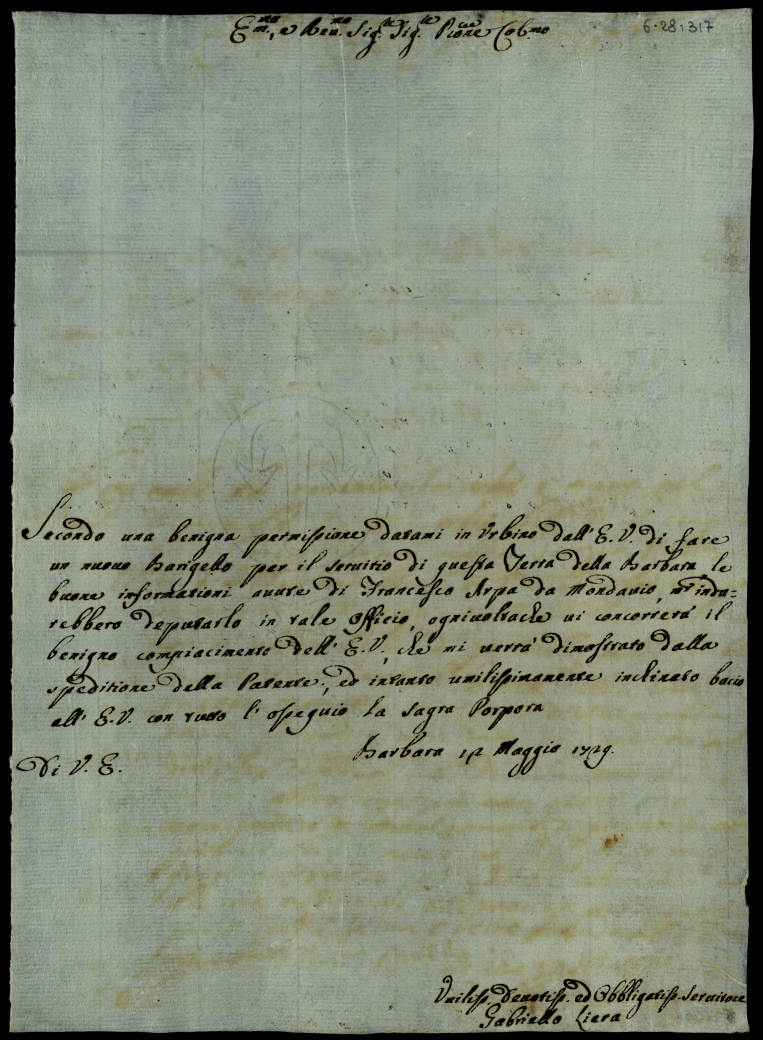 6·28:317
Em.mo, e Rev.mo Sig.re Sig.re P.rone Col.mo
Secondo una benigna permissione datami in Urbino dall' E. V. di fare
un nuovo Barigello per il servitio di questa Terra della Barbara le
buone informationi avute di Francesco Arpa da Mondavio, m'indu=
rebbero deputarlo in tale Officio, ogni volta che vi concorrerà il
benigno compiacimento dell' E. V., che mi verrà dimostrato dalla
speditione della Patente; ed intanto umilissimamente inclinato bacio
all' E. V. con tutto l' ossequio la sagra Porpora
Barbara 12 Maggio 1729.
Di V. E.
Umiliss. Devotiss. ed Obbligatiss. Servitore
Gabriello